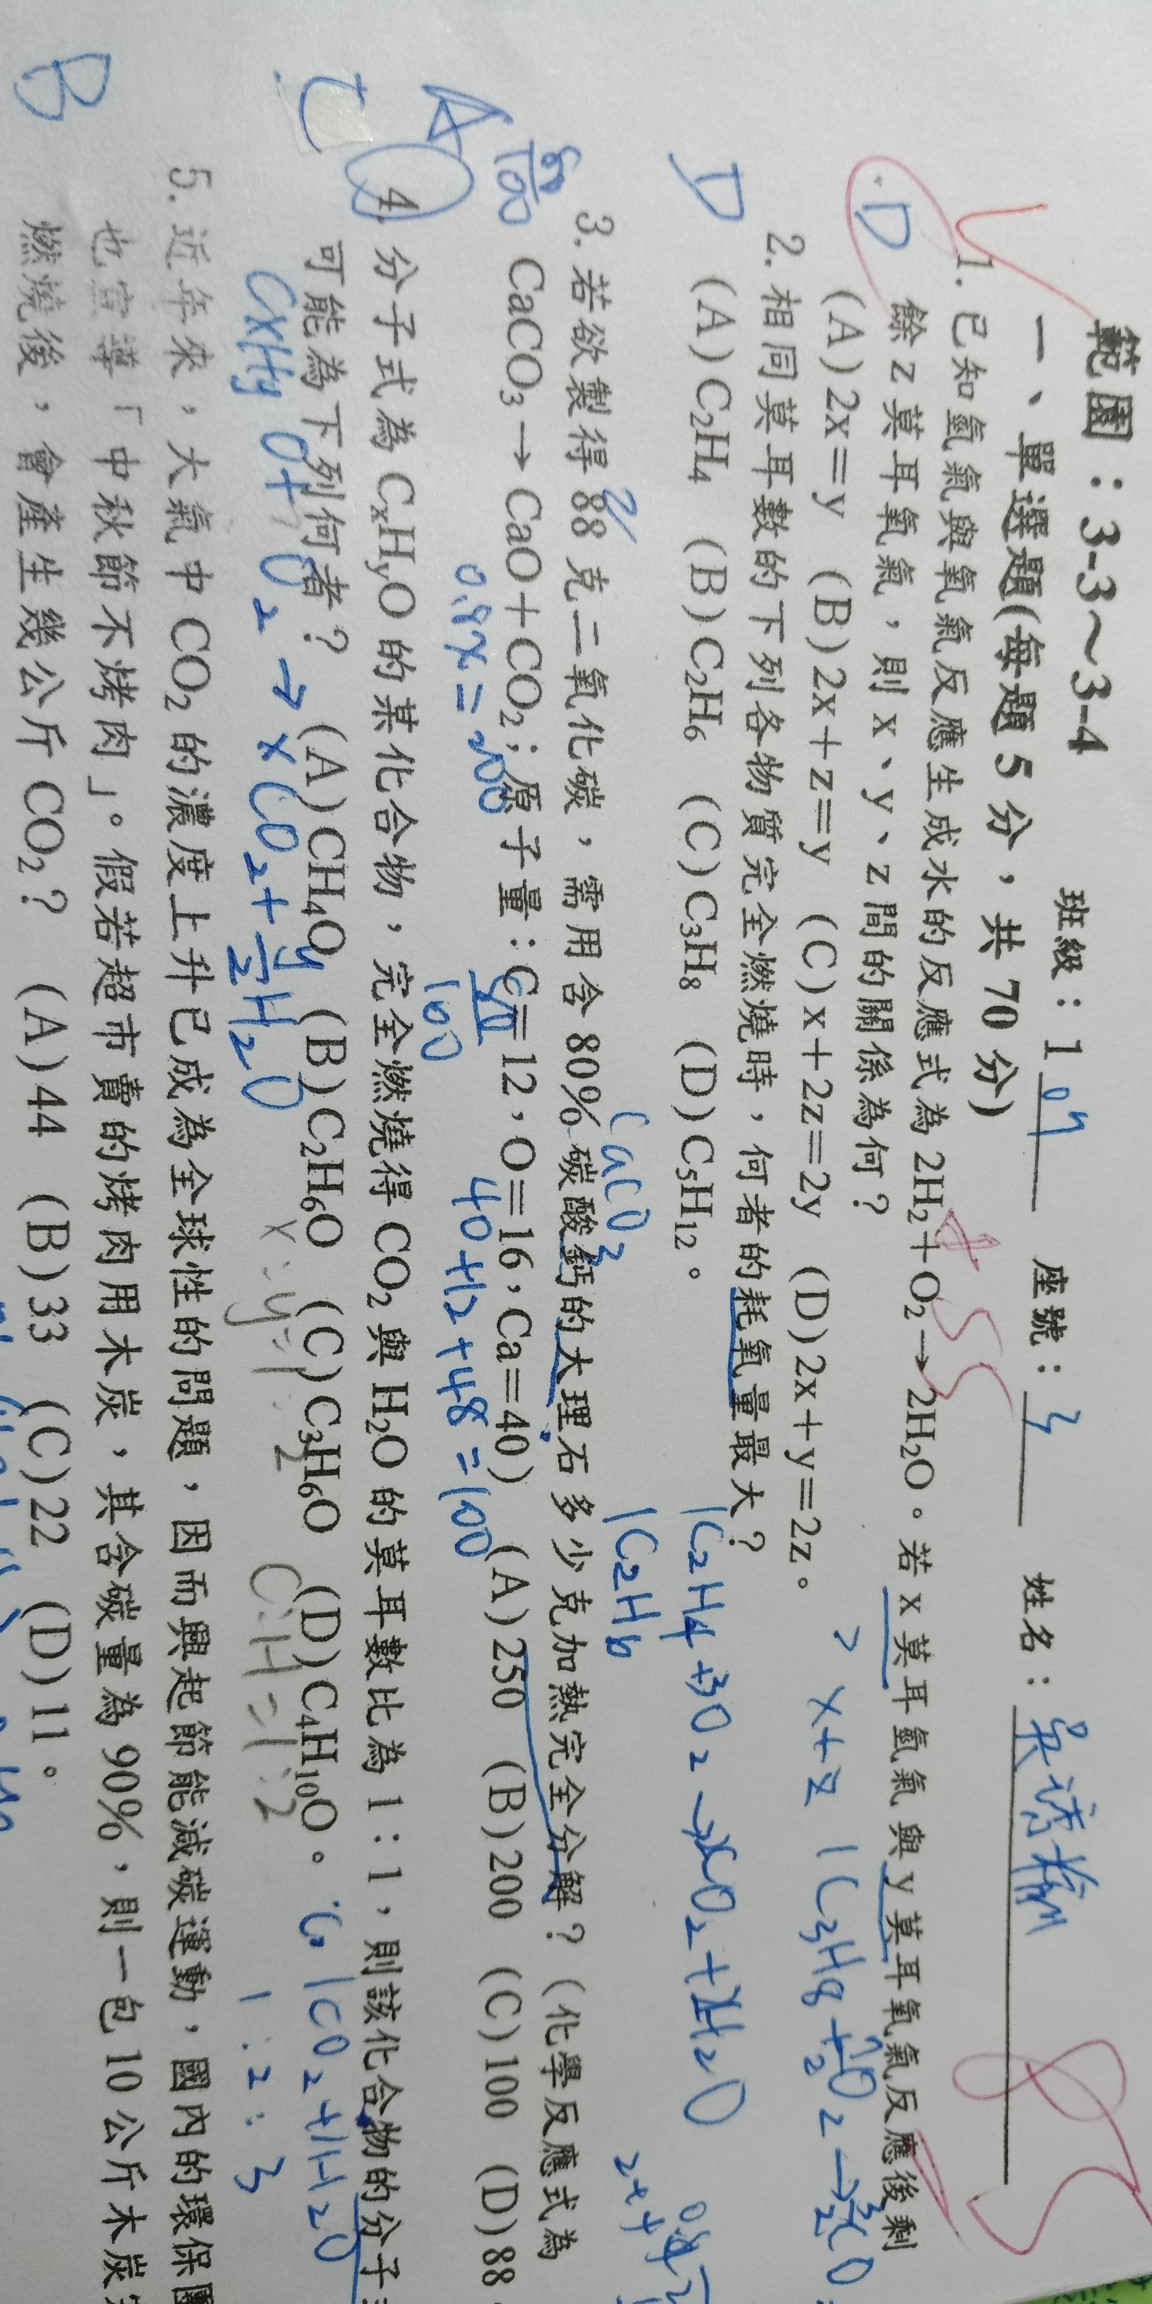 範圍：3-3～3-4 班級：1 04 座號：3 姓名：吳
一、單選題(每題 5 分，共 70 分)
D 1. 已知氫氣與氧氣反應生成水的反應式為 2H₂＋O₂→2H₂O。若 x 莫耳氫氣與 y 莫耳氧氣反應後剩
餘 z 莫耳氧氣，則 x、y、z 間的關係為何？
(A)2x＝y (B)2x＋z＝y (C)x＋2z＝2y (D)2x＋y＝2z。
x+z 1C₃H₈+
D 2. 相同莫耳數的下列各物質完全燃燒時，何者的耗氧量最大？
(A)C₂H₄ (B)C₂H₆ (C)C₃H₈ (D)C₅H₁₂。
1C₂H₄+3O₂→2CO₂+2H₂O
1C₂H₆
CaCO₃
A 3. 若欲製得 88 克二氧化碳，需用含 80% 碳酸鈣的大理石多少克加熱完全分解？(化學反應式為
CaCO₃→CaO＋CO₂；原子量：C＝12，O＝16，Ca＝40) (A)250 (B)200 (C)100 (D)88
80/100
0.8x=200
40+12+48=100
C 4. 分子式為 CₓHᵧO 的某化合物，完全燃燒得 CO₂ 與 H₂O 的莫耳數比為 1：1，則該化合物的分子
可能為下列何者？ (A)CH₄O (B)C₂H₆O (C)C₃H₆O (D)C₄H₁₀O。
1CO₂+1H₂O
CxHyO+O₂→xCO₂+y/2H₂O
x:y=1:2
C:H=1:2
1:2:3
B 5. 近年來，大氣中 CO₂ 的濃度上升已成為全球性的問題，因而興起節能減碳運動，國內的環保團
也宣導「中秋節不烤肉」。假若超市賣的烤肉用木炭，其含碳量為 90%，則一包 10 公斤木炭完
燃燒後，會產生幾公斤 CO₂？ (A)44 (B)33 (C)22 (D)11。